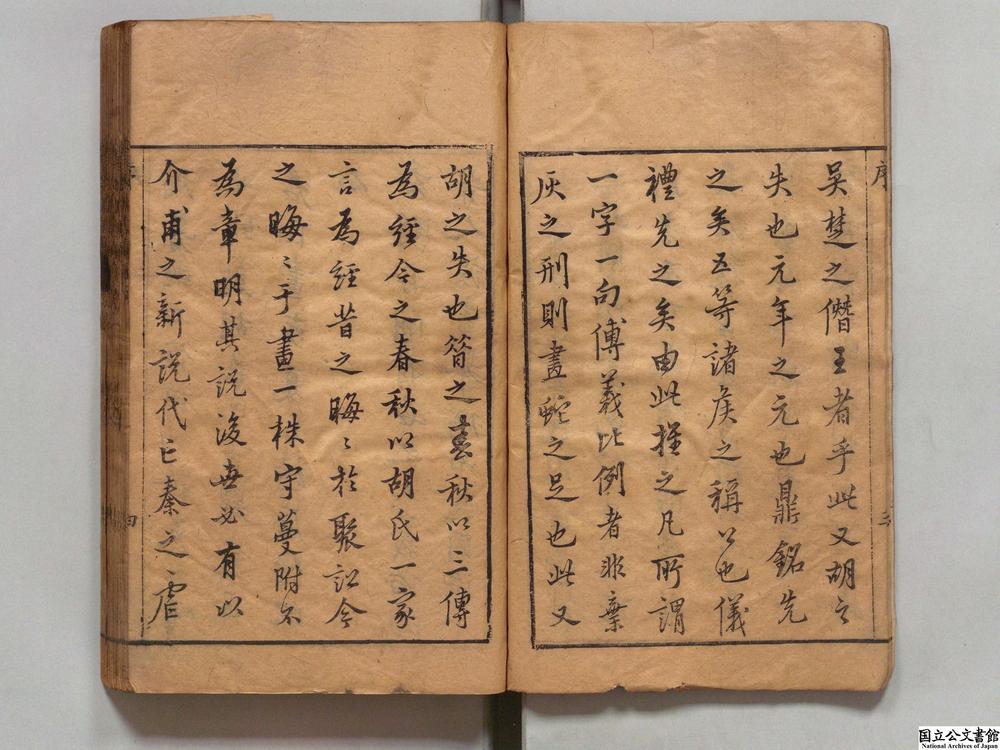 序
吳楚之僭王者乎此又胡之
失也元年之元也鼎銘先
之矣五等諸侯之稱公也儀
禮先之矣由此推之凡所謂
一字一句傅義比例者非棄
灰之刑則畫蛇之足也此又
三
胡之失也昔之春秋以三傳
為經今之春秋以胡氏一家
言為經昔之晦〻於聚訟今
之晦〻于畫一株守蔓附不
為章明其說後世必有以
介甫之新說代亡秦之虐
四
国立公文書館
National Archives of Japan